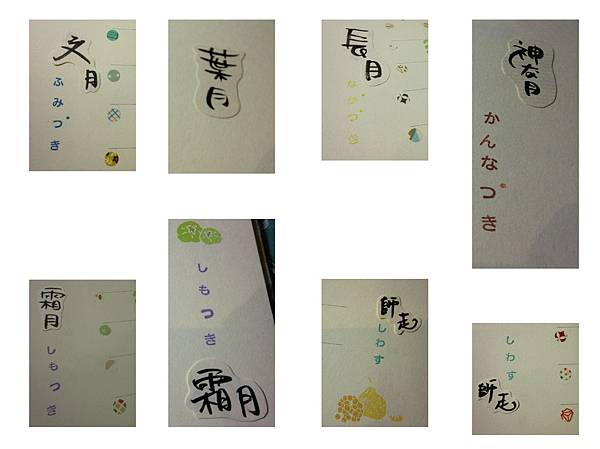 文月
ふみづき
葉月
長月
ながつき
神な月
かんなづき
霜月
しもつき
しもつき
霜月
師走
しわす
しわす
師走